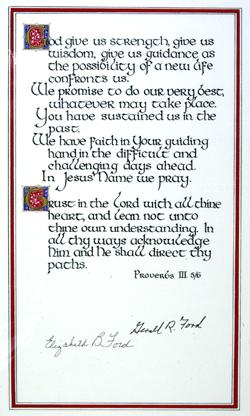 God give us strength, give us
wisdom, give us guidance as
the possibility of a new life
confronts us.
We promise to do our very best,
whatever may take place.
You have sustained us in the
past.
We have faith in Your guiding
hand in the difficult and
challenging days ahead.
In Jesus' Name we pray.
Trust in the Lord with all thine
heart, and lean not unto
thine own understanding. In
all thy ways acknowledge
Him and he shall direct thy
paths.
Proverbs III 5/6
Gerald R. Ford
Elizabeth B. Ford